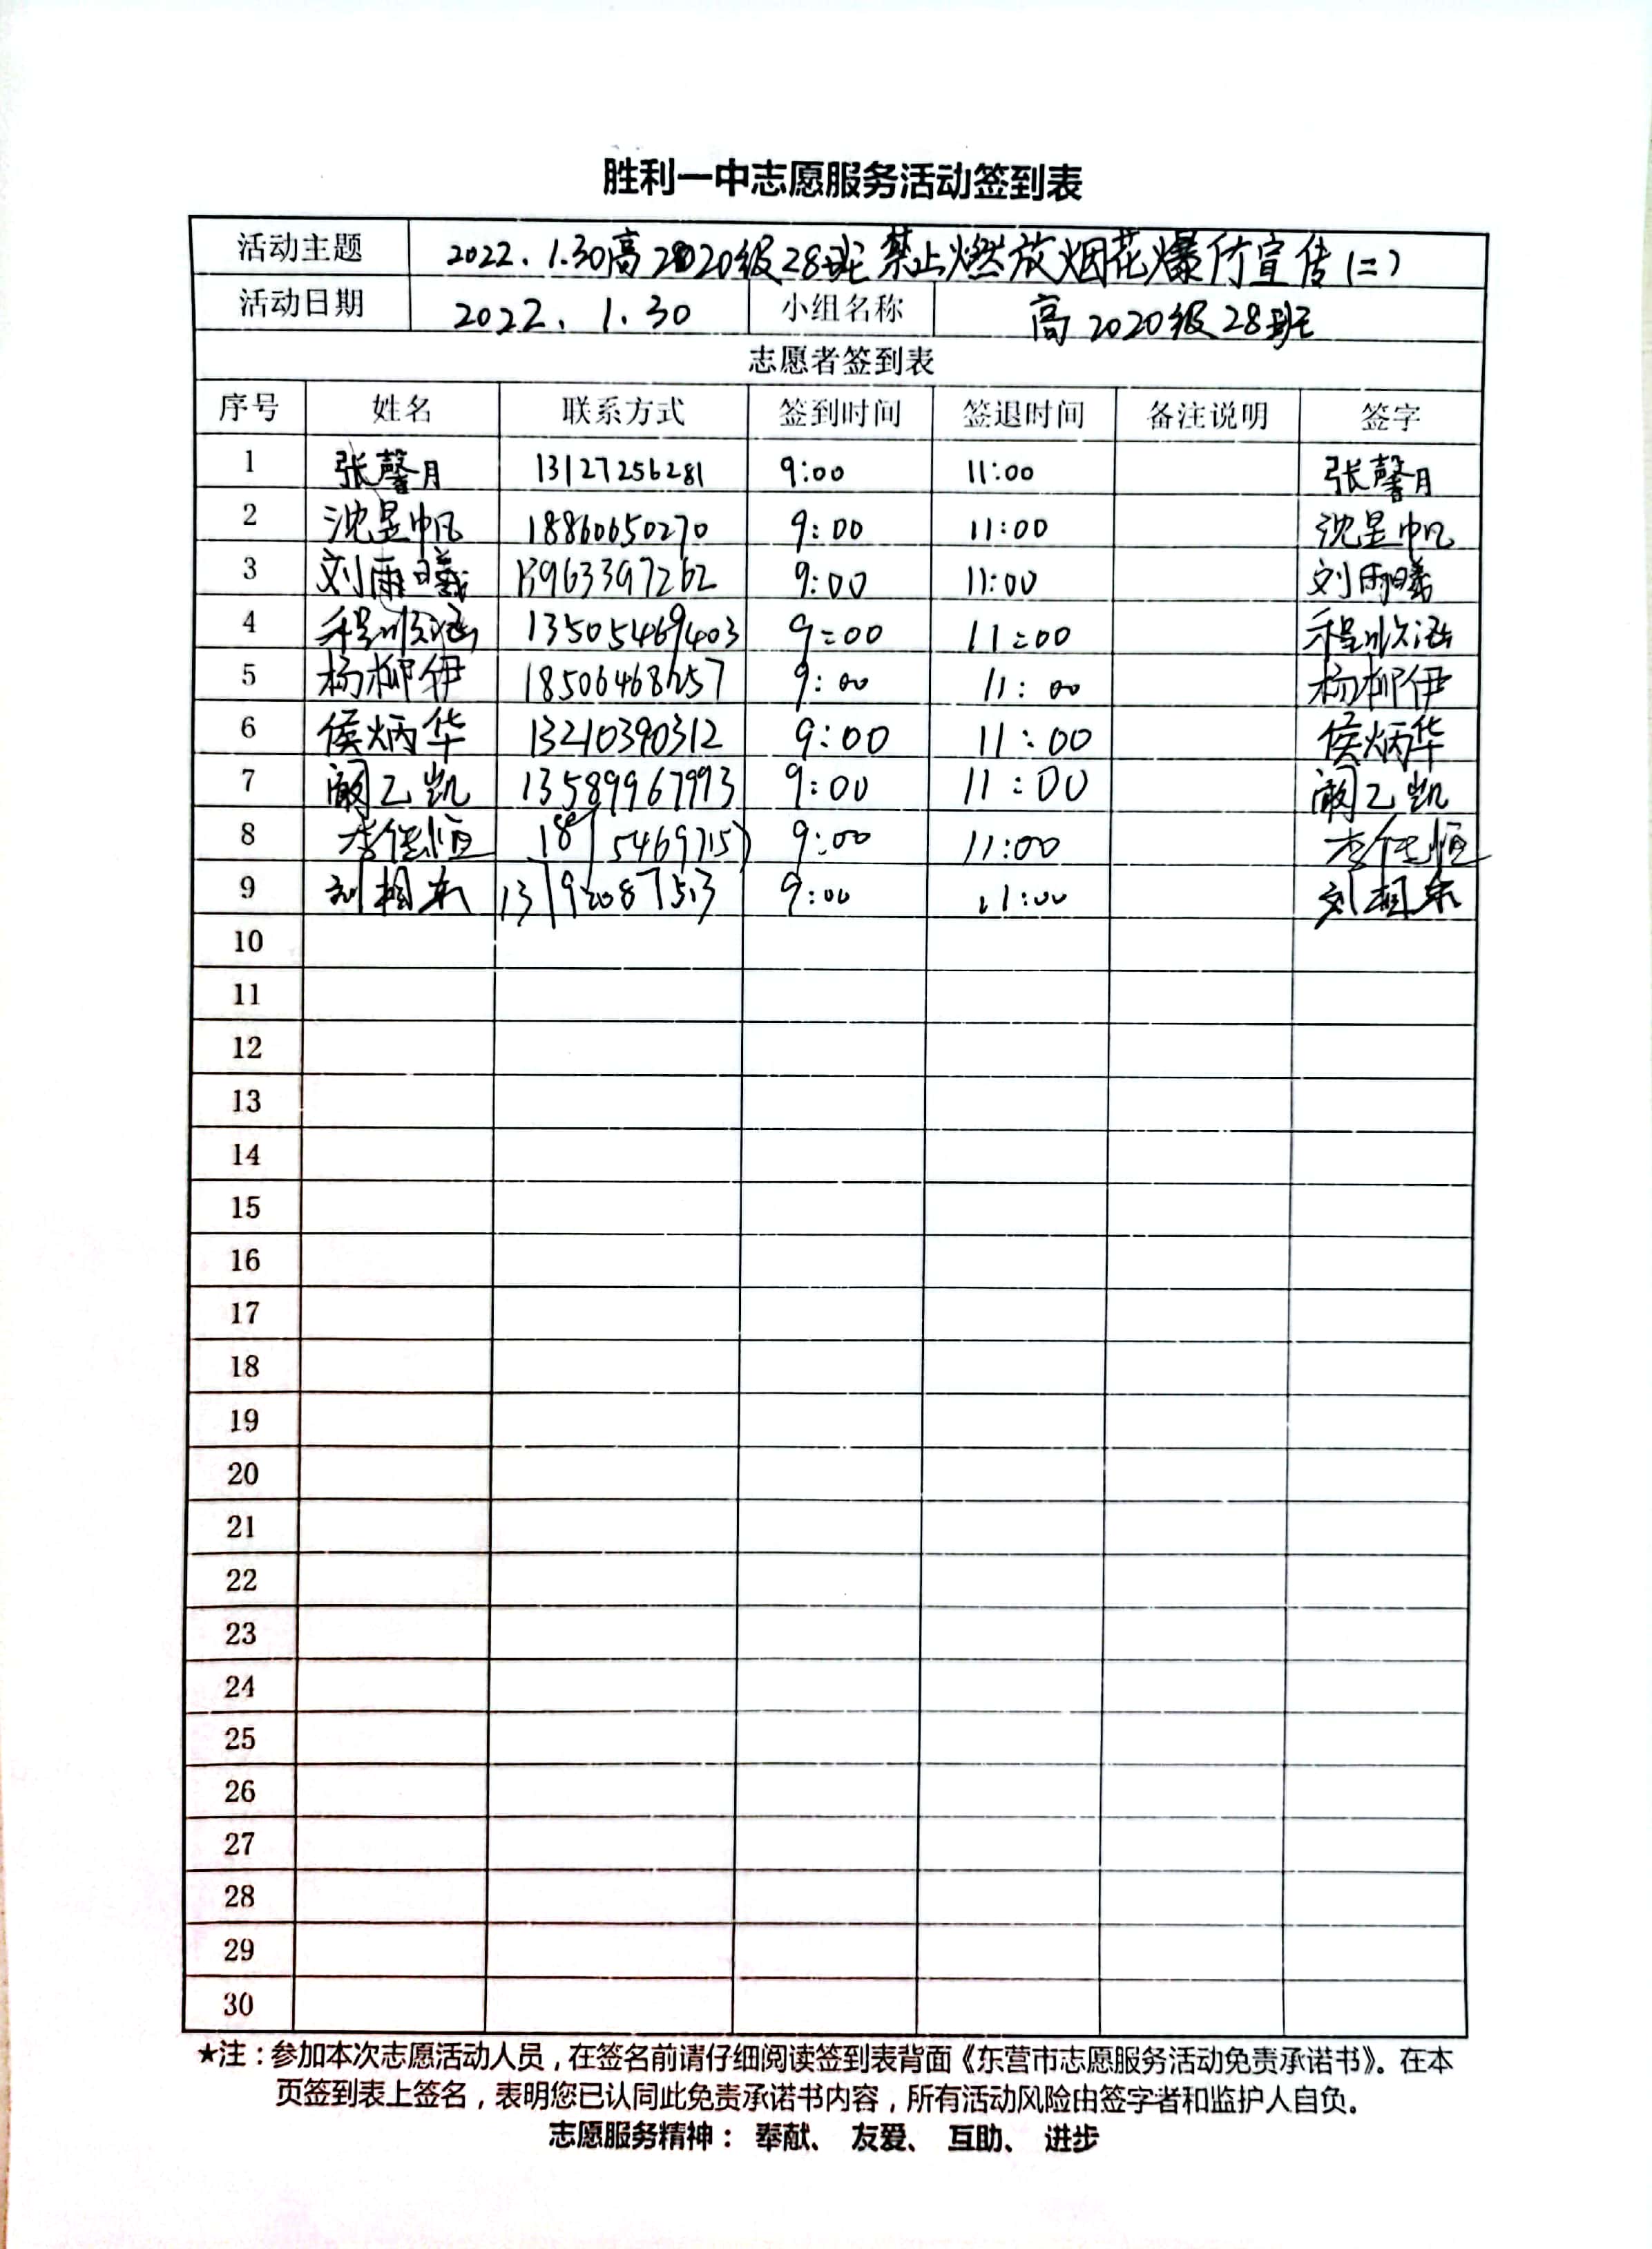 胜利一中志愿服务活动签到表
活动主题 2022.1.30高2020级28班禁止燃放烟花爆竹宣传(二)
活动日期 2022.1.30 小组名称 高2020级28班
志愿者签到表
序号 姓名 联系方式 签到时间 签退时间 备注说明 签字
1 张馨月 13127256281 9:00 11:00 张馨月
2 沈昱帆 18860650270 9:00 11:00 沈昱帆
3 刘雨曦 13963397262 9:00 11:00 刘雨曦
4 13505469403 9:00 11:00
5 杨柳伊 9:00 11:00 杨柳伊
6 侯炳华 13210390312 9:00 11:00 侯炳华
7 阚乙凯 13589967993 9:00 11:00 阚乙凯
8 9:00 11:00
9 9:00 11:00
10
11
12
13
14
15
16
17
18
19
20
21
22
23
24
25
26
27
28
29
30
★注：参加本次志愿活动人员，在签名前请仔细阅读签到表背面《东营市志愿服务活动免责承诺书》。在本
页签到表上签名，表明您已认同此免责承诺书内容，所有活动风险由签字者和监护人自负。
志愿服务精神： 奉献、 友爱、 互助、 进步